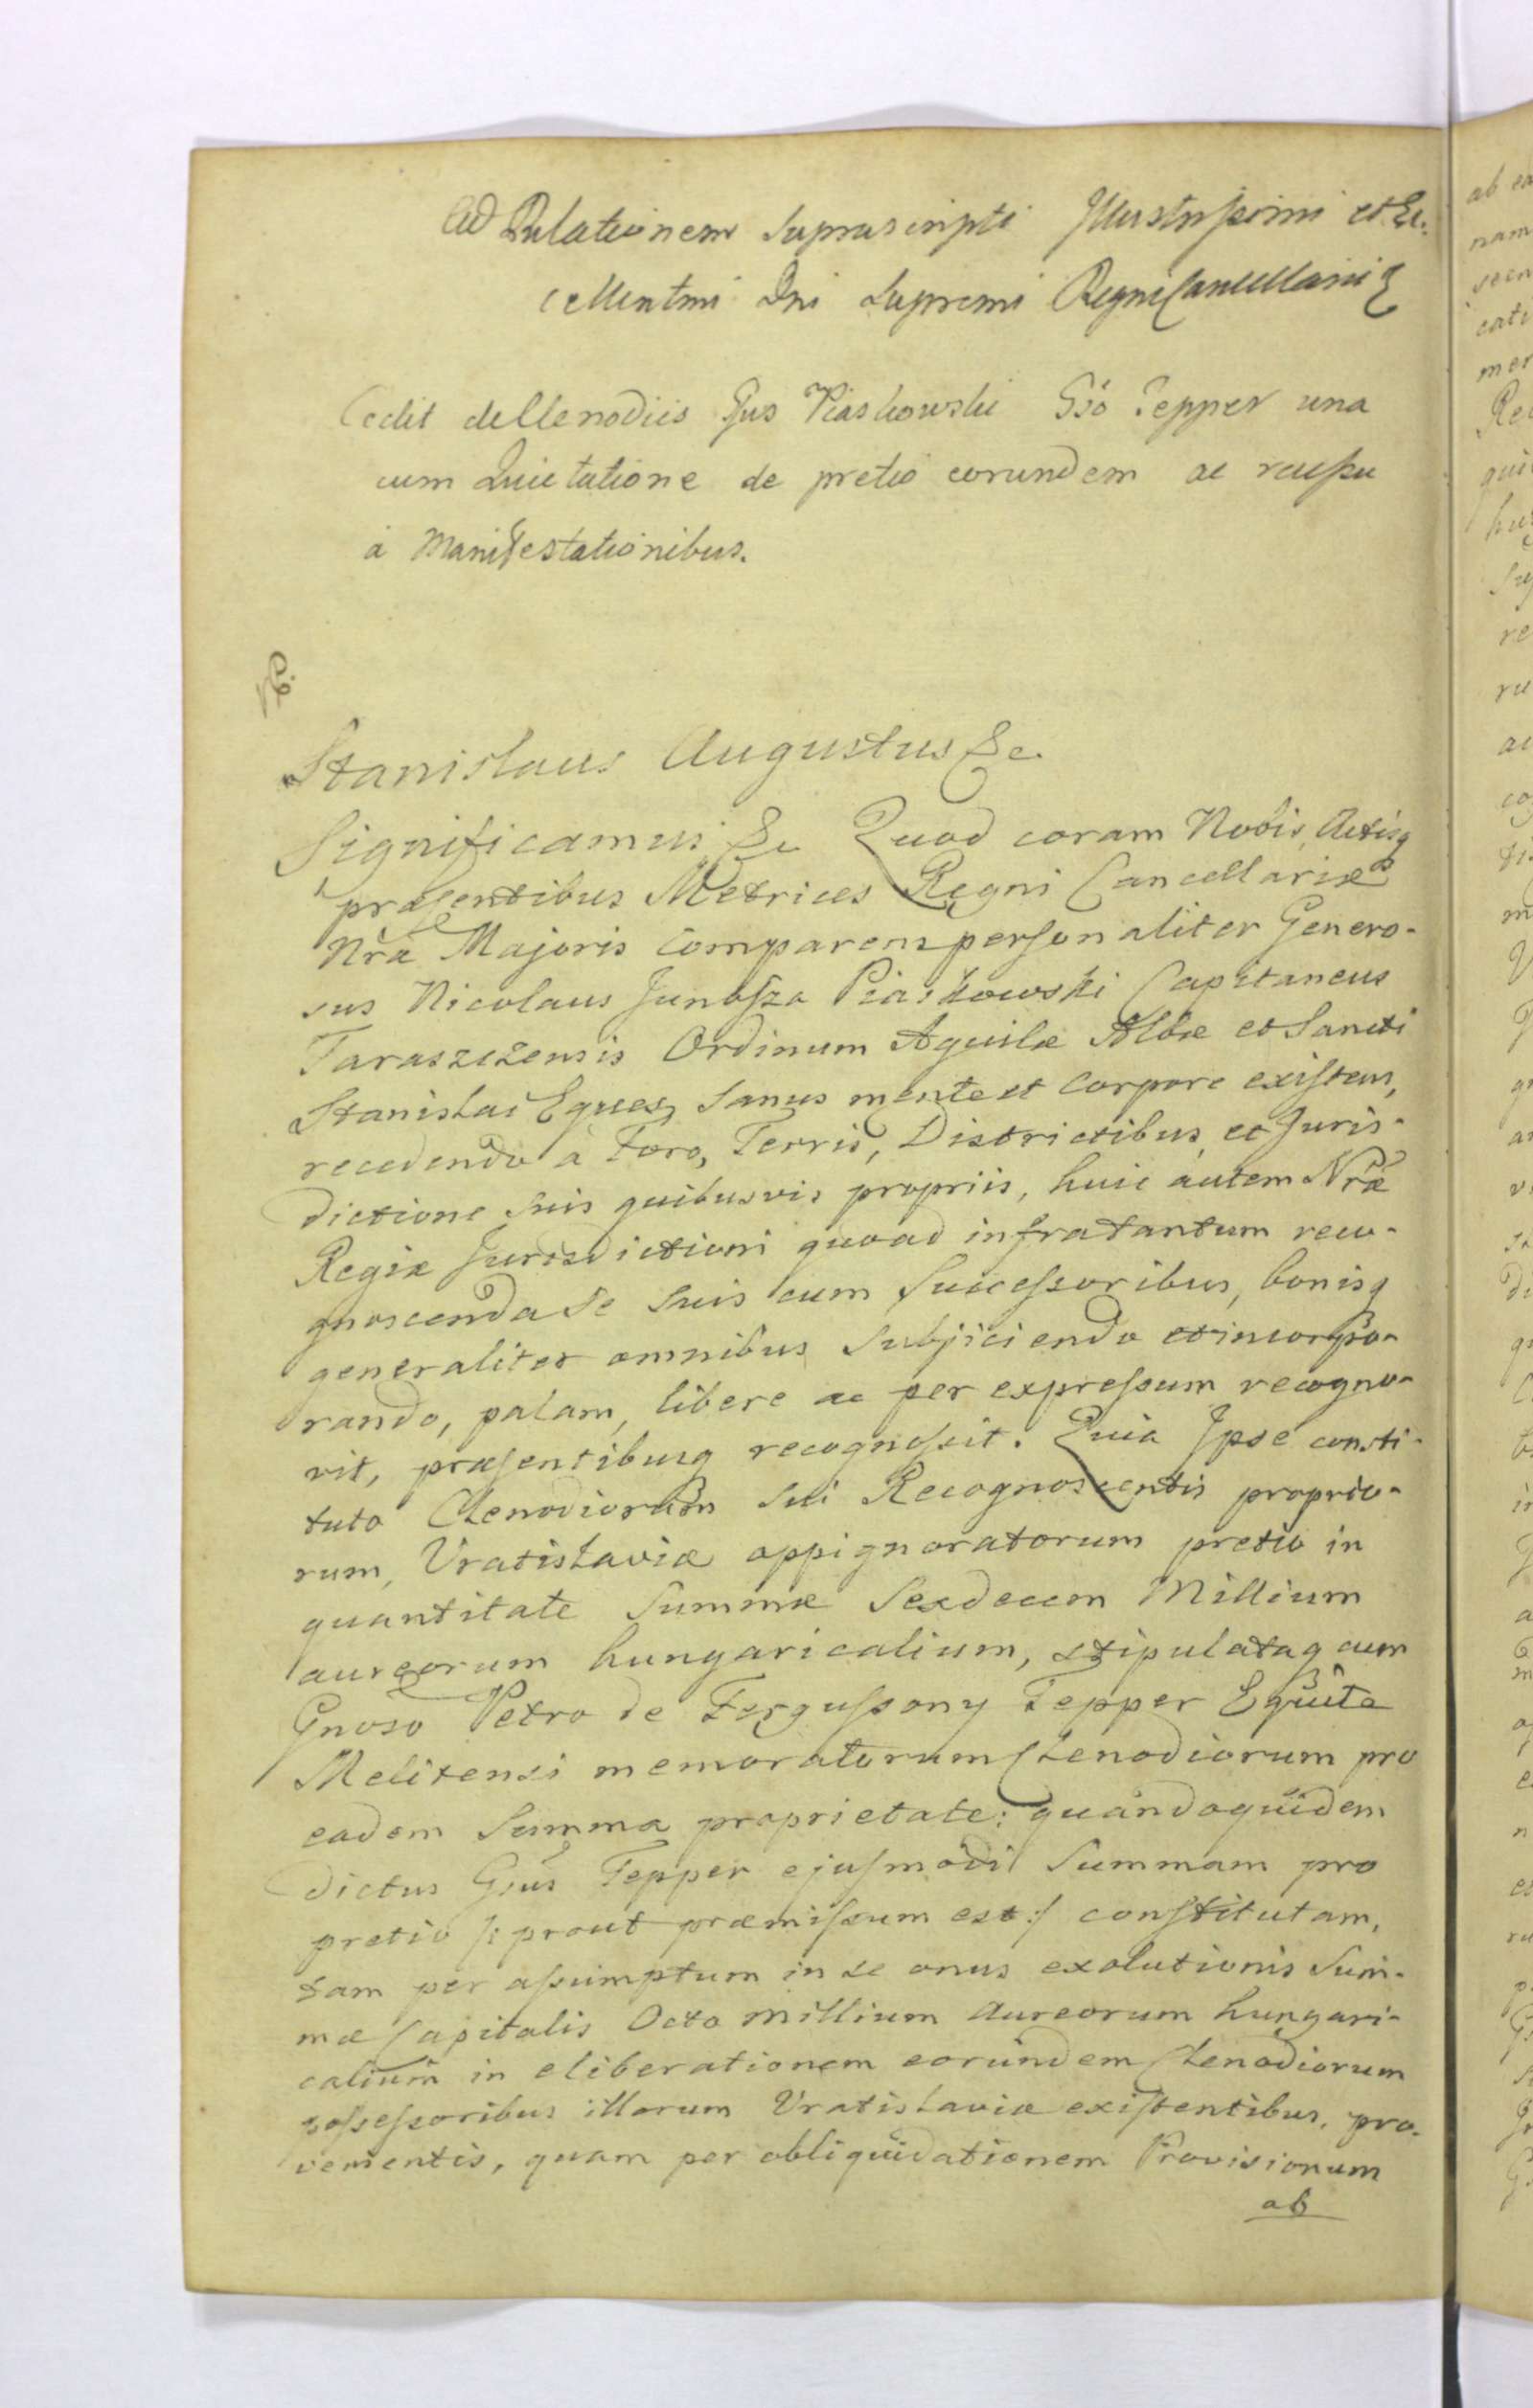 Ad Relationem suprascripti Illustrissimi et Ex
cellentmi Dni Supremi Regni Cancellarii
Cedit de Clenodiis Gsus Piaskowski Gso Tepper una
cum Quietatione de pretio eorundem ac recessu
à Manifestationibus.
Stanislaus Augustus &c.
Significamus &c Quod coram Nobis, Actisq
præsentibus Metrices Regni Cancellariæ
Nræ Majoris comparens personaliter Genero-
sus Nicolaus Junosza Piaskowski Capitaneus
Taraszczensis Ordinum Aquilæ Albæ et Sancti
Stanislai Eques, Sanus mente et Corpore existens,
recedendo à Foro, Terris, Districtibus, et Juris-
dictione suis quibusvis propriis, huic autem Nræ
Regiæ Jurisdictioni quoad infra tantum reco-
gnoscenda se suis cum Successoribus, bonisq
generaliter omnibus subjiciendo et incorpo-
rando, palam, libere ac per expressum recogno-
vit, præsentibusq recognoscit. Quia Ipse consti-
tuto Clenodiorum sui Recognoscentis proprio-
rum, Vratislaviæ oppignoratorum pretio in
quantitate Summæ Sexdecem Millium
aureorum hungaricalium, stipulataq cum
Gnoso Petro de Fergussony Tepper Equite
Melitensi memoratorum Clenodiorum pro
eadem Summa proprietate: quandoquidem
dictus Gsus Tepper ejusmodi Summam pro
pretio /: prout præmissum est :/ constitutam,
tam per assumptum in se onus exolutionis Sum-
mæ Capitalis Octo millium Aureorum hungari-
calium in eliberationem eorundem Clenodiorum
possessoribus illorum Vratislaviæ existentibus, pro-
venientis, quam per obliquidationem Provisionum
ab